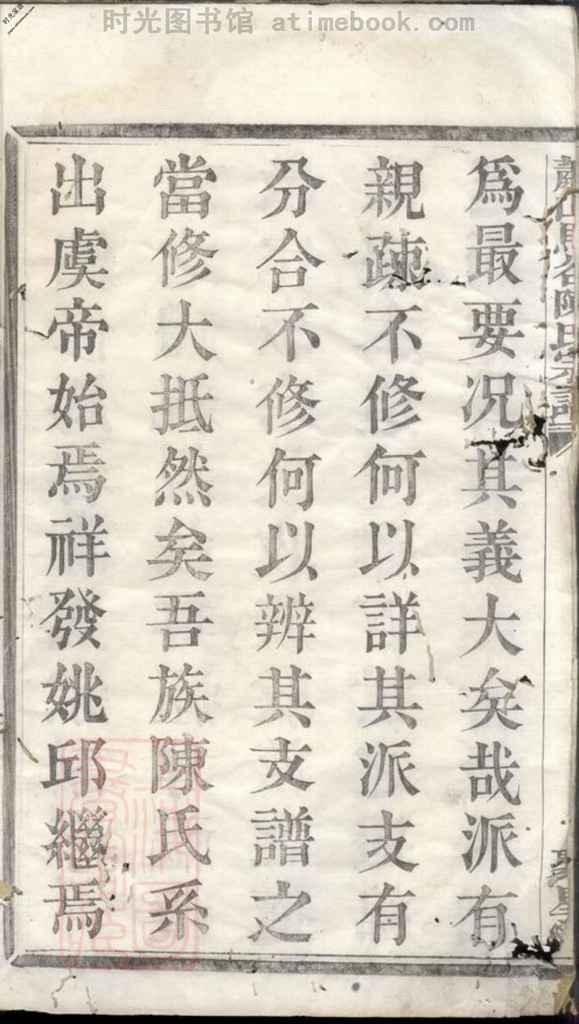 时光图书馆 atimebook.com
陳氏宗譜
為最要况其義大矣哉派有
親疎不修何以詳其派支有
分合不修何以辨其支譜之
當修大抵然矣吾族陳氏系
出虞帝始焉祥發姚邱繼焉